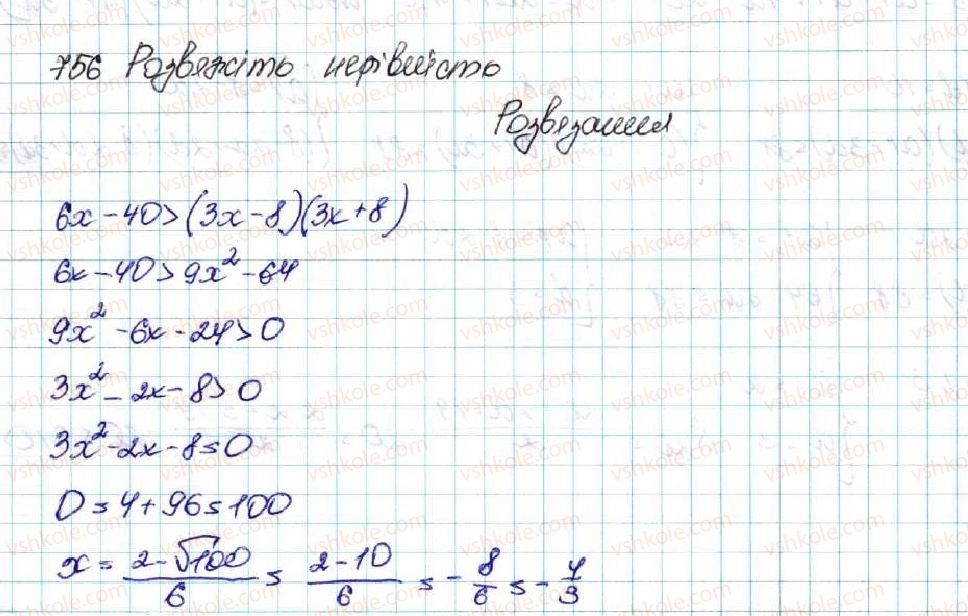 756 Розвяжіть нерівність
Розвязання
6x - 40 > (3x - 8)(3x + 8)
6x - 40 > 9x² - 64
9x² - 6x - 24 > 0
3x² - 2x - 8 > 0
3x² - 2x - 8 = 0
D = 4 + 96 = 100
x = (2 - √100)/6 = (2 - 10)/6 = - 8/6 = - 4/3